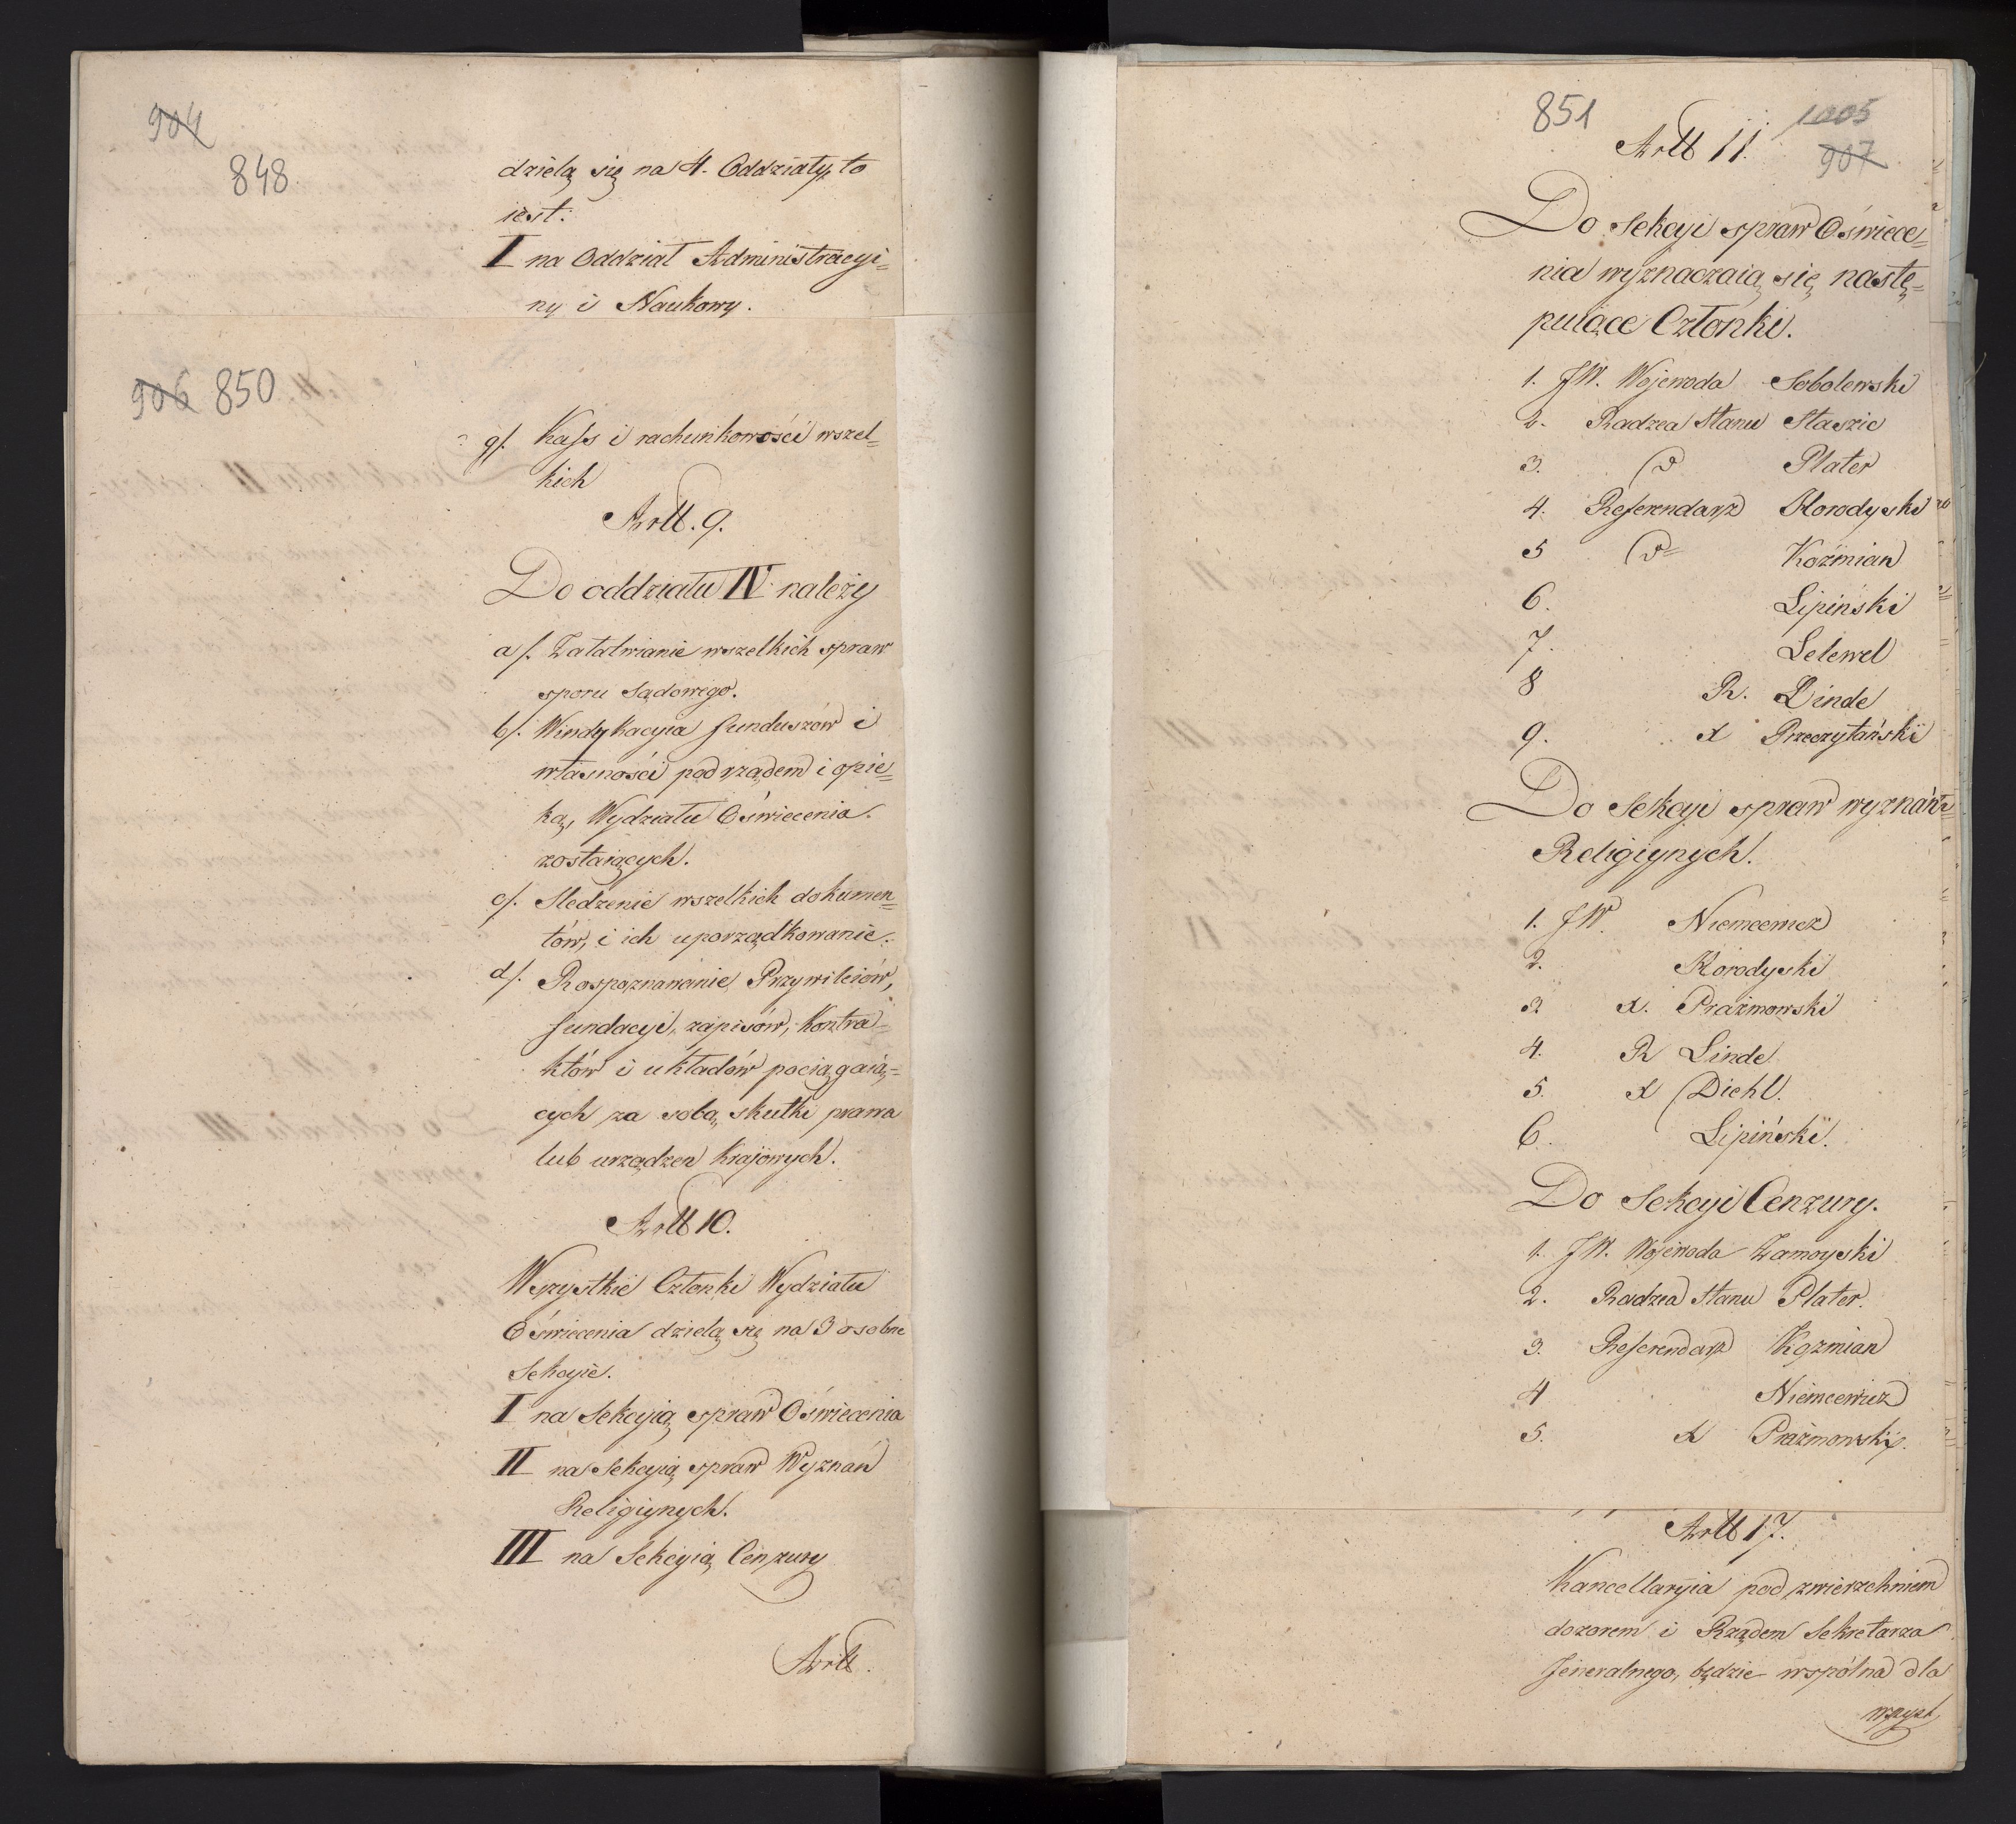 904
848
dzielą się na 4. Oddziały, to
iest:
I na Oddział Administracyi=
ny i Naukowy.
906 850
g/. Kass i rachunkowości wszel=
kich
Artt. 9.
Do oddziału IV należy
a/. Załatwianie wszelkich spraw
sporu Sądowego.
b/. Windykacyia funduszów i
własności pod rządem i opie=
ką, Wydziału Oświecenia
zostaiących.
c/. Sledzenie wszelkich dokumen=
tów, i ich uporządkowanie.
d/. Rospoznawanie Przywileiów,
fundacyi, zapisów, Kontra=
któw i układów pociągaią=
cych za sobą, skutki prawa
lub urządzen Krajowych.
Artt 10.
Wszystkie Członki Wydziału
Oświecenia dzielą się na 3 osobne
Sekcyie.
I na Sekcyią spraw Oświecenia
II na Sekcyią spraw Wyznań
Religiynych.
III na Sekcyią Cenzury
Artt.
851 1005
Artt 11. 907
Do Sekcyi spraw Oświece=
nia wyznaczaią się nastę=
puiące Członki.
1. JW. Wojewoda Sobolewski
2. Radzca Stanu Staszic
3. d Plater
4. Referendarz Horodyski
5 d= Koźmian
6. Lipiński
7. Lelewel
8 R. Linde
9. X Przeczytański
Do Sekcyi spraw wyznań
Religiynych.
1. JW. Niemcewicz
2. Horodyski
3 X. Prażmowski
4. R Linde
5. X Diehl.
6. Lipiński.
Do Sekcyi Cenzury.
1. JW. Wojewoda Zamoyski
2. Radzca Stanu Plater.
3. Referendarz Kozmian
4 Niemcewicz
5. X Prażmowski.
Artt 17.
Kancellaryia pod zwierzchniem
dozorem i Rządem Sekretarza
Jeneralnego, będzie wspólna dla
wszyst